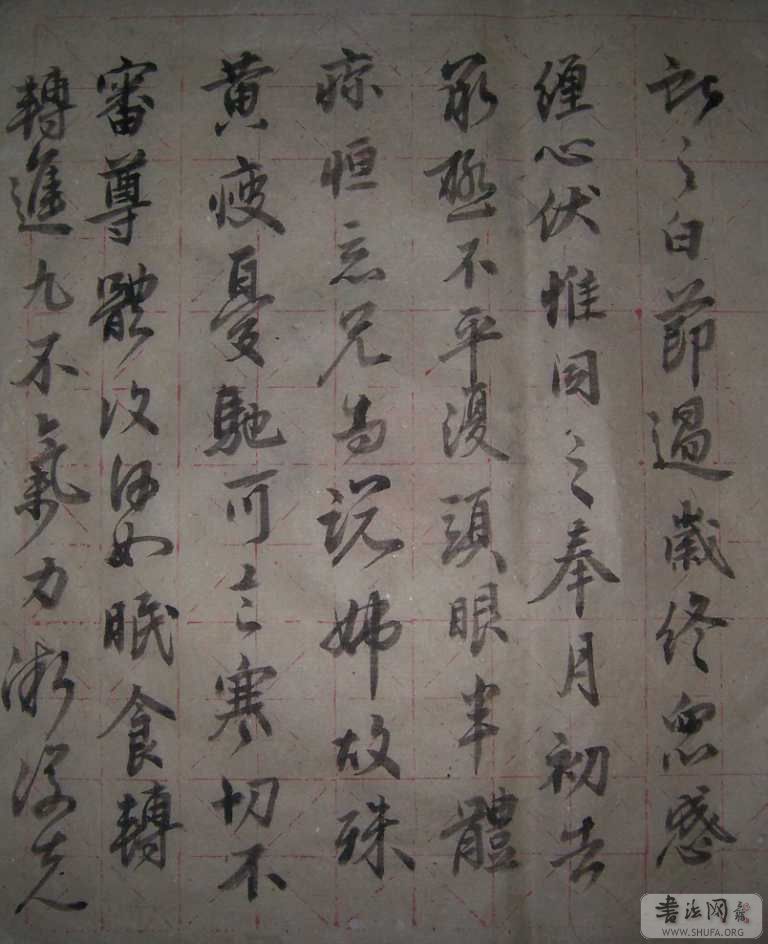 獻之白節過歲終眾感
纏心伏惟同之奉月初告
承極不平復頭眼半體
疼恒兄為說姊故殊
黃瘦憂馳可言寒切不
審尊體復何如眠食轉
轉進九不氣力漸復先
書法网
WWW.SHUFA.ORG